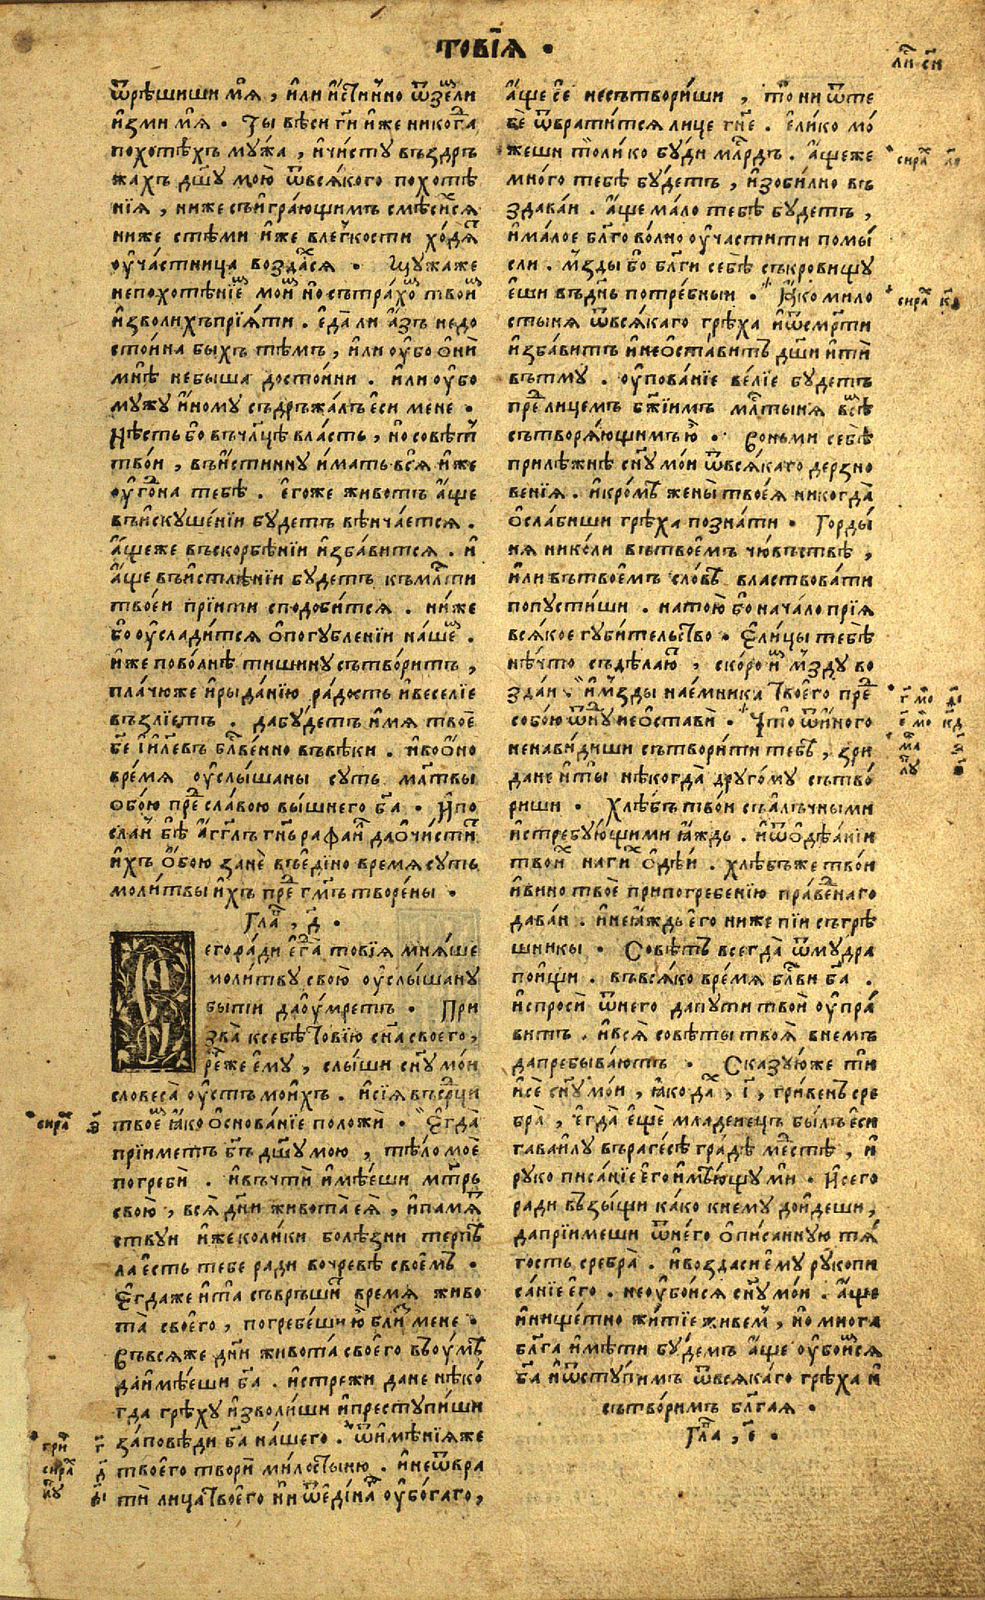 товїа ·
ѿрѣшиши мѧ , и҆ли и҆стинно ѿзели
и҆зми мѧ · Ты вѣси г҃и и҆же никогда
похотѣхъ мужа , и҆чисту въздръ
жахъ дш҃у мою̀ ѿвсѧкого похотѣ
нїѧ , ниже съи҆граю҆щимъ смѣсихсѧ
ниже стѣми и҆же влегкости ходѧт
оу҆частница воздахсѧ · Щужаже
непохотѣнїем моим но̀ сътрахом твоим
и҆зволихъ прїѧти . е҆да̀ли а҆зъ недо
стойна быхъ тѣмъ , и҆ли оу҆бо ѻ҆ни
мнѣ небыша достойни . и҆ли оу҆бо
мужу и҆ному съдръжалъ є҆си мене ·
Нѣсть бо въчл҃цѣ власть , но̀ совѣт
твой , въи҆стинну и҆мать всѧ и҆же
оу҆годна тебѣ . є҆гоже животъ а҆ще
въи҆скушенїи будетъ вѣнчаетсѧ .
а҆щеже въскорбѣнїи и҆збавитсѧ . и҆
а҆ще въи҆стлѣнїи будетъ къмл҃ти
твоей прїити сподобитсѧ . ниже
бо оу҆сладитсѧ ѻ҆погубленїи нашем .
и҆же поволнѣ тишину сътворитъ ,
плачюже и҆рыданїю радость и҆веселїе
възлїетъ . дабудетъ и҆мѧ твое
б҃е і҆и҃левъ бл҃венно въвѣки . и҆воѻно
времѧ оу҆слышаны суть мл҃твы
ѻбою пред славою вышнего б҃а · И҆по
слан бѣ а҆гг҃лъ гн҃ь рафаил даѻ҆чистит
и҆хъ ѻ҆бою занѐ въе҆дино времѧ суть
молитвы и҆хъ пред гм҃ъ творены ·
Глав , д҃ ·
егоради е҆гда товїѧ мнѧше
молитву свою̀ оу҆слышану
быти даоу҆мретъ · При
зва ксебѣ Товїю сн҃а своего ,
рече е҆му , слыши сн҃у мой
словеса оу҆стъ моихъ . и҆сїѧ въсерци
твоем ꙗ҆ко ѻ҆снованїе положи · Є҆гда
прїиметъ бг҃ъ дш҃у мою , тѣло моѐ
погреби . и҆въчти и҆мѣеши мт҃рь
свою̀ , всѧ̀ дн҃и живота е҆ѧ , и҆памѧт
ствуи и҆же колики болѣзни терпѣ
ла е҆сть тебе ради вочревѣ своемъ ·
Є҆гдаже и҆та съвръшит времѧ живо
та̀ своего , погребеши ю҆ близ мене ·
Въвсѧже дн҃и живота своего въоу҆мѣ
даи҆мѣеши б҃а . и҆стрежи дане нѣко
гда грѣху и҆зволиши и҆преступиши
заповѣди б҃а нашего . ѿи҆мѣнїѧже
твоего твори милостыню . и҆неѿвра
ти лица твоего ни ѿединаг оу҆богаго ,
сирах з҃
а҆ще се несътвориши , то ни ѿте
бѐ ѿвратитсѧ лице гн҃е . є҆лико мо
жеши толико буди мл҃рдъ . а҆щеже
много тебѣ будетъ , и҆зобилно въ
здаваи . а҆ще мало тебѣ будетъ ,
и҆малое бл҃говолно оу҆частити помы
сли . мъзды бо бл҃ги себѣ съкровищу
е҆ши въдн҃ь потребныи · Ꙗ҆ко мило
стынѧ ѿвсѧкаго грѣха и҆ѿсмр҃ти
и҆збавитъ и҆неѻ҆ставитъ дш҃и и҆ти
вътму . оу҆пованїе велїе будетъ
пред лицемъ бж҃їимъ мл҃тынѧ всѣм
сътворѧющимъ ю҆ · Воньми себѣ
прилѣжнѣ сн҃у мой ѿвсѧкаго дерзно
венїѧ . и҆кромѣ жены твоеѧ никогда
ѻ҆слабиши грѣха познати · Горды
нѧ николи вътвоемъ чювьствѣ ,
и҆ли вътвоемъ словѣ властвовати
попустиши . натою бо начало прїѧ
всѧкое губительство · Є҆лицы тебѣ
нѣчто съдѣлают , скоро им мзду во
здаи . и҆мъзды наемника твоего пред
собою ѿнуд неѻ҆стави · Что ѿи҆ного
ненавидиши сътворити тебѣ , зри
дане и҆ты нѣкогда другому сътво
риши · Хлѣбъ твои съалъчными
и҆стребующими ꙗ҆ждь . и҆ѿѻ҆дѣанїи
твоих нагих ѻ҆дѣи . хлѣбъже твои
и҆вино твоѐ припогребенїю праведнаго
даваи . и҆неꙗждь е҆го ниже пїи съгрѣ
шникы · Совѣтъ всегда ѿмудра
поищи . въвсѧко времѧ бл҃ви б҃а .
и҆спроси ѿнего дапути твоѝ оу҆пра
витъ . и҆всѧ совѣты твоѧ̀ внемъ
дапребываютъ · Сказуюже ти
и҆се сн҃у мой , ꙗ҆ко дах , і҃ , гривенъ сре
бра̀ , е҆гда̀ е҆ще младенецъ былъ е҆си
гаваилу върагесѣ градѣ местѣ , и҆
руко писанїе е҆го и҆мѣющу ми · И҆сего
ради възыщи како книему дойдеши ,
даприимеши ѿнего ѻ҆писанную тѧ
гость сребра̀ . и҆воздаси е҆му рукопи
санїе е҆го . неоу҆бойсѧ сн҃у мой . а҆ще
и҆нищетно житїе живем , но многа
бл҃га и҆мѣти будемъ а҆ще оу҆боимсѧ
б҃а и҆ѿступимъ ѿвсѧкаго грѣха и҆
сътворимъ бл҃гаѧ ·
Глав , е҃ ·